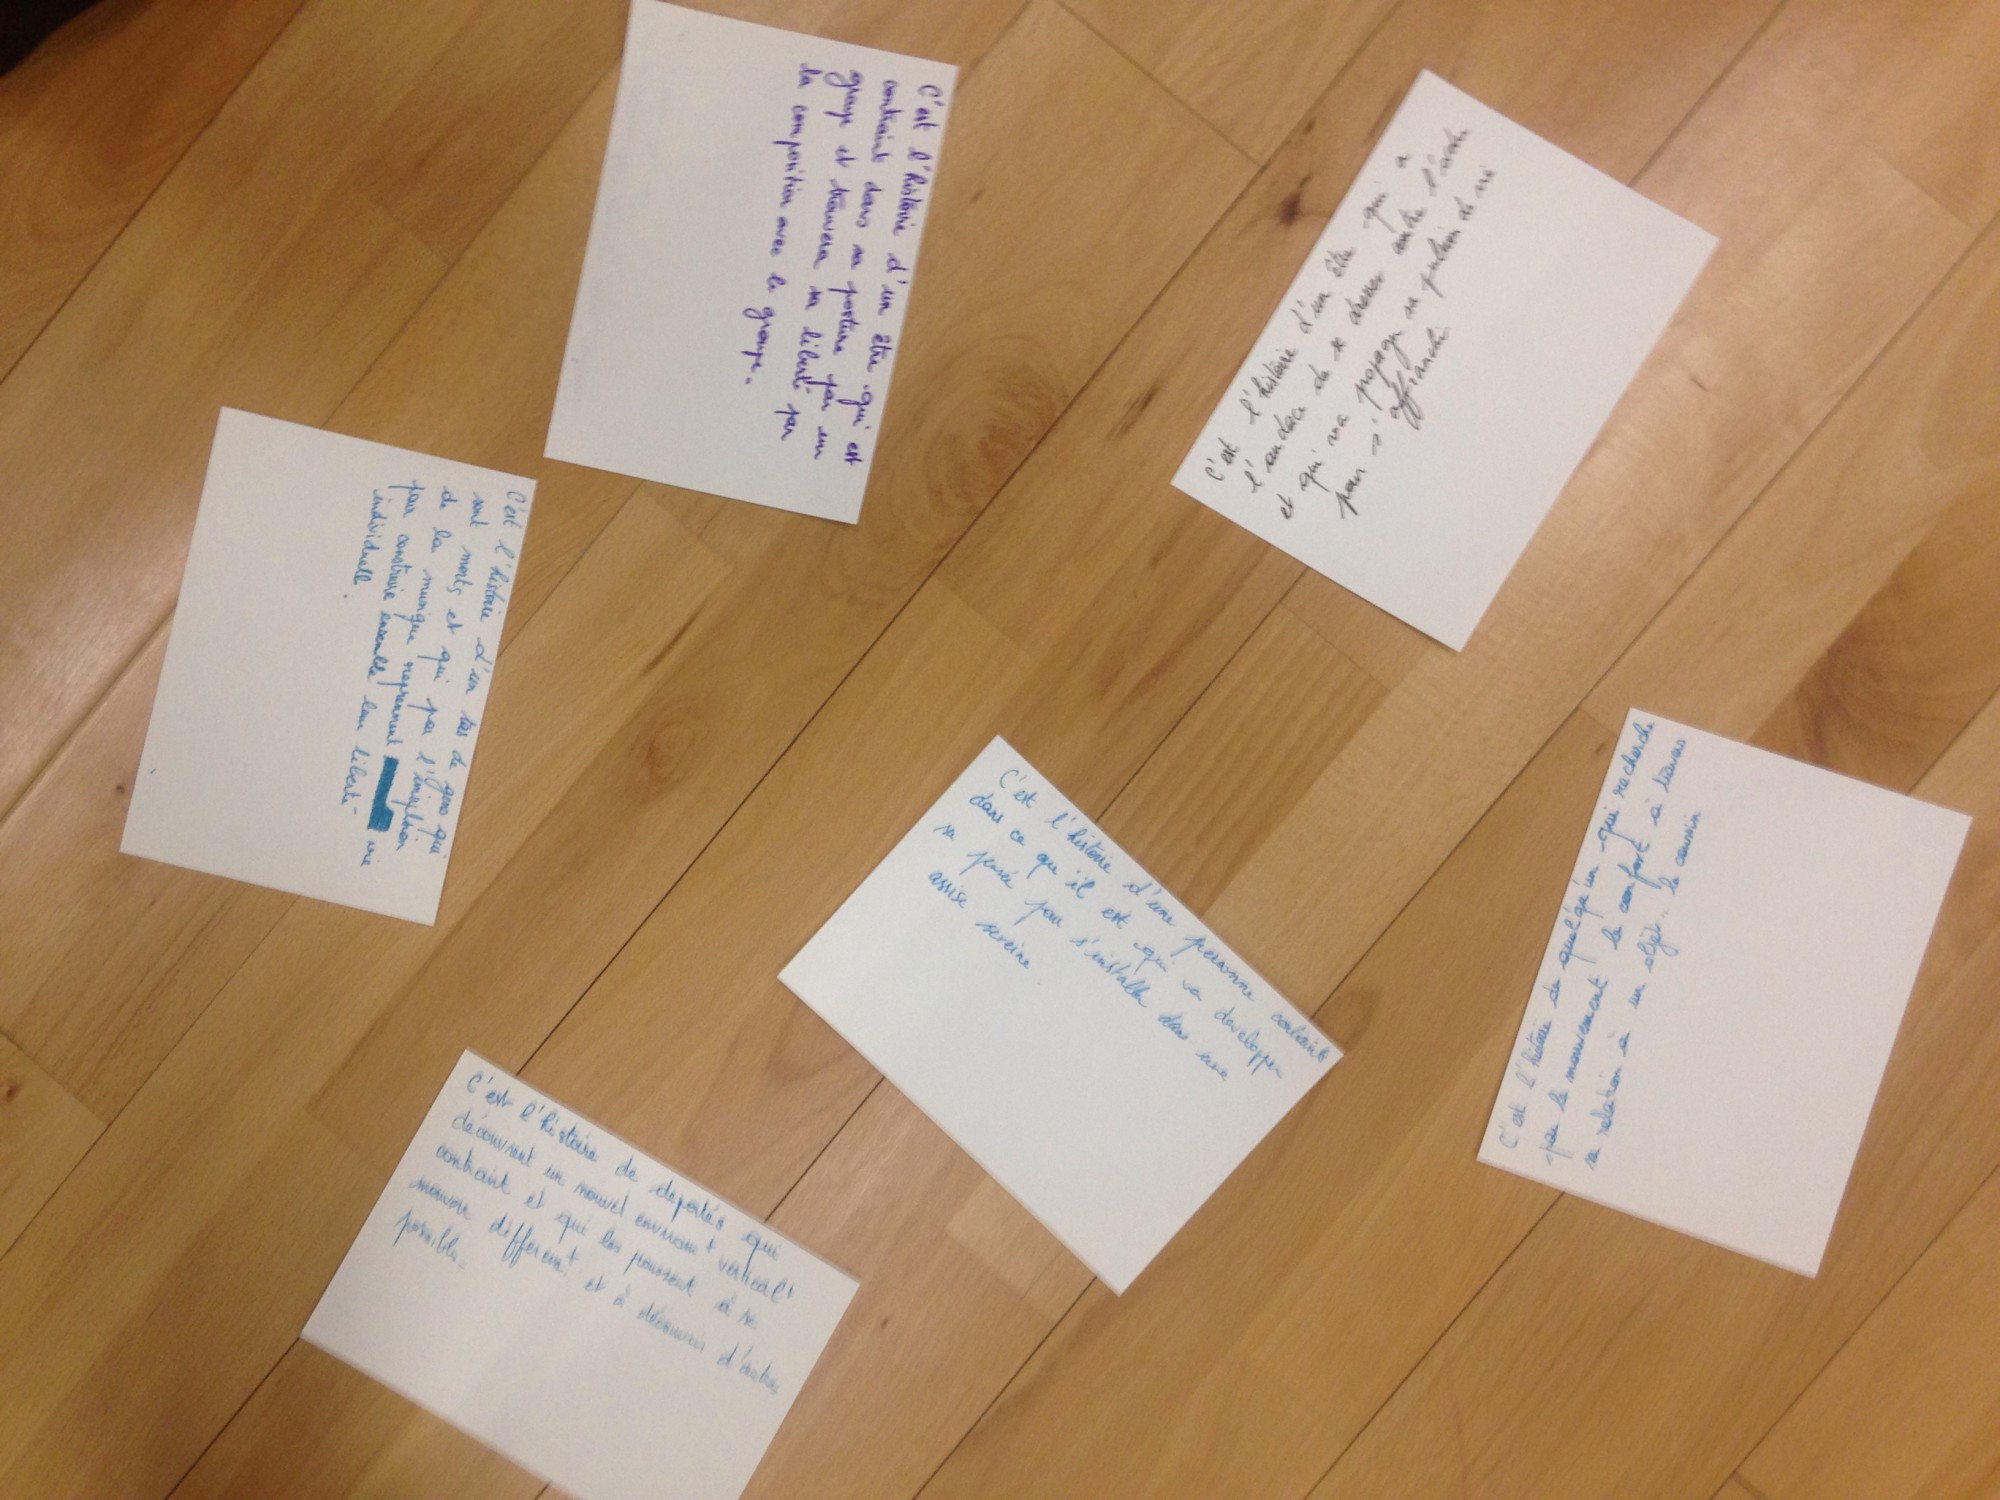 C'est l'histoire d'un être qui est
contraint dans sa posture par un
groupe et trouvera sa liberté par
la composition avec le groupe.
C'est l'histoire d'un être qui a
l'audace de se dresser contre l'ordre
et qui va propager sa pulsion de vie
pour s'affranchir
C'est l'histoire d'un tas de gens qui
sont morts et qui par l'impulsion
de la musique reprennent vie
pour construire ensemble leur liberté
individuelle.
C'est l'histoire d'une personne contrainte
dans ce qu'il est qui va developper
sa pensée pour s'installer dans une
assise sereine.
C'est l'histoire de quelqu'un qui recherche
par le mouvement le confort à travers
sa relation à un objet : le coussin
C'est l'histoire de deportés qui
découvrent un nouvel environt vertical
contraint et qui les poussent à se
mouvoir différent et à découvrir d'autres
possibles.